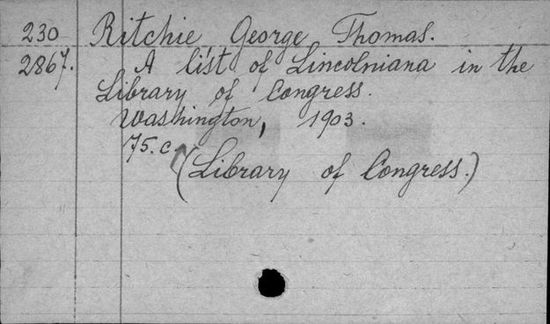 230 Ritchie George Thomas.
2867. A list of Lincolniana in the
Library of Congress.
Washington, 1903.
75.c.
(Library of Congress.)